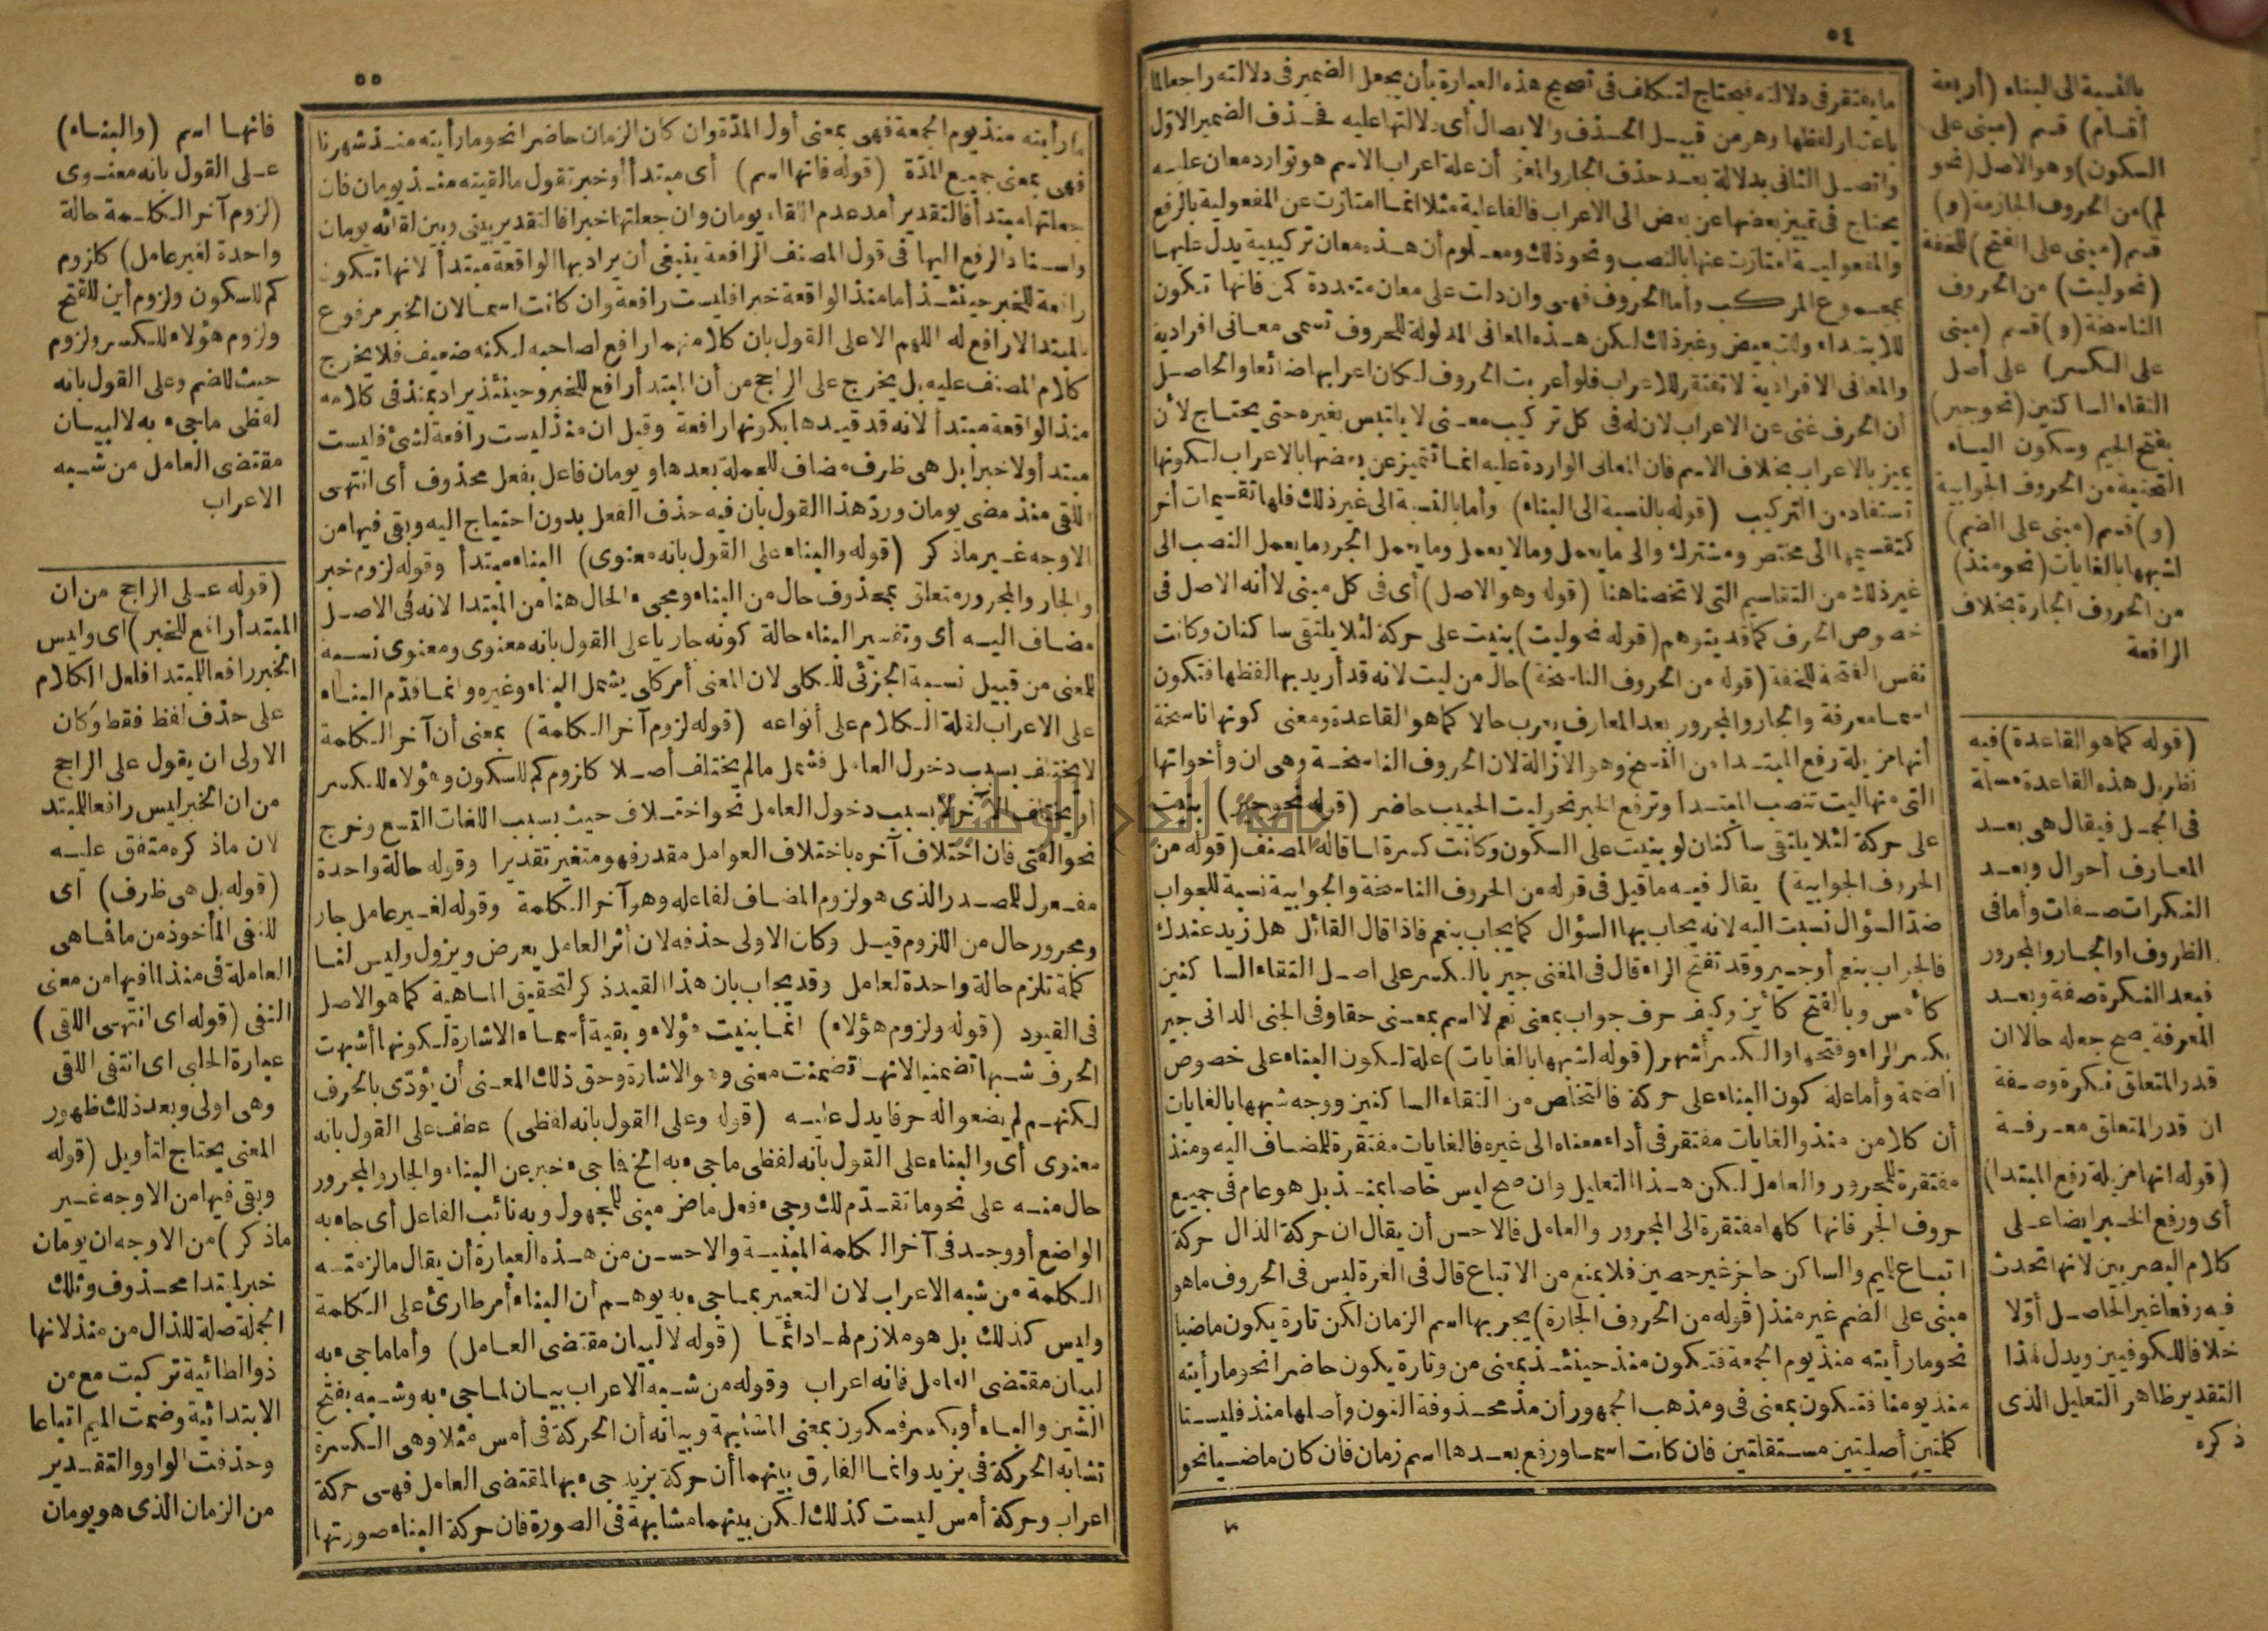 ٥٤
بالنسبة الى البناء (أربعة
أقسام) قسم (مبنى على
السكون) وهو الاصل (نحو
لم) من الحروف الجازمة (و)
قسم (مبنى على الفتح) للخفة
(نحو ليت) من الحروف
الناسخة (و) قسم (مبنى
على الكسر) على أصل
التقاء الساكنين (نحو جير)
بفتح الجيم وسكون الياء
التحتية من الحروف الجوابية
(و) قسم (مبنى على الضم)
لشبهها بالغايات (نحو منذ)
من الحروف الجارة بخلاف
الرافعة
(قوله كما هو القاعدة) فيه
نظر بل هذه القاعدة مسلة
فى الجمل فيقال هى بعد
المعارف أحوال وبعد
النكرات صفات وأما فى
الظروف او الجار والمجرور
فبعد النكرة صفة وبعد
المعرفة يصح جعله حالا ان
قدر المتعلق نكرة وصفة
ان قدر المتعلق معرفة
(قوله انها مزيلة رفع المبتدا)
أى ورفع الخبر ايضا على
كلام البصريين لانها تحدث
فيه رفعا غير الحاصل أولا
خلافا للكوفيين ويدل لهذا
التقدير ظاهر التعليل الذى
ذكره
ما يفتقر فى دلالته فيحتاج لتكلف فى تصحيح هذه العبارة بأن يجعل الضمير فى دلالته راجعا لما
باعتبار لفظها وهو من قبيل الحذف والايصال أى دلالتها عليه فحذف الضمير الاول
واتصل الثانى بدلالة بعد حذف الجار والمعنى أن علة اعراب الاسم هو توارد معان عليه
يحتاج فى تمييز بعضها عن بعض الى الاعراب فالفاعلية مثلا انما امتازت عن المفعولية بالرفع
والمفعولية امتازت عنها بالنصب ونحو ذلك ومعلوم أن هذه معان تركيبية يدل عليها
بمجموع المركب وأما الحروف فهى وان دلت على معان متعددة كمن فانها تكون
للابتداء وللتبعيض وغير ذلك لكن هذه المعانى المدلولة للحروف تسمى معانى افرادية
والمعانى الافرادية لا تفتقر للاعراب فلو أعربت الحروف لكان اعرابها ضائعا والحاصل
أن الحرف غنى عن الاعراب لان له فى كل تركيب معنى لا يلتبس بغيره حتى يحتاج لأن
يميز بالاعراب بخلاف الاسم فان المعانى الواردة عليه انما تتميز عن بعضها بالاعراب لكونها
تستفاد من التركيب (قوله بالنسبة الى البناء) وأما بالنسبة الى غير ذلك فلها تقسيمات أخر
كتقسيمها الى مختص ومشترك والى ما يعمل وما لا يعمل وما يعمل الجر وما يعمل النصب الى
غير ذلك من التقاسيم التى لا تخصنا هنا (قوله وهو الاصل) أى فى كل مبنى لا أنه الاصل فى
خصوص الحرف كما قد يتوهم (قوله نحو ليت) بنيت على حركة لئلا يلتقى ساكنان وكانت
نفس الفتحة للخفة (قوله من الحروف الناسخة) حال من ليت لانه قد أريد بها لفظها فتكون
اسما معرفة والجار والمجرور بعد المعارف يعرب حالا كما هو القاعدة ومعنى كونها ناسخة
أنها مزيلة رفع المبتدا من النسخ وهو الازالة لان الحروف الناسخة وهى ان وأخواتها
التى منها ليت تنصب المبتدأ وترفع الخبر نحو ليت الحبيب حاضر (قوله نحو جير) بنيت
على حركة لئلا يلتقى ساكنان لو بنيت على السكون وكانت كسرة لما قاله المصنف (قوله من
الحروف الجوابية) يقال فيه ما قيل فى قوله من الحروف الناسخة والجوابية نسبة للجواب
ضد السؤال نسبت اليه لانه يجاب بها السؤال كما يجاب بنعم فاذا قال القائل هل زيد عندك
فالجواب بنعم أو جير وقد تفتح الراء قال فى المغنى جير بالكسر على اصل التقاء الساكنين
كأمس وبالفتح كأين وكيف حرف جواب بمعنى نعم لا اسم بمعنى حقا وفى الجنى الدانى جير
بكسر الراء وفتحها والكسر أشهر (قوله لشبهها بالغايات) علة لكون البناء على خصوص
الضمة وأما علة كون البناء على حركة فالتخلص من التقاء الساكنين ووجه شبهها بالغايات
أن كلا من منذ والغايات مفتقر فى أداء معناه الى غيره فالغايات مفتقرة للمضاف اليه ومنذ
مفتقرة للمجرور والعامل لكن هذا التعليل وان صح ليس خاصا بمنذ بل هو عام فى جميع
حروف الجر فانها كلها مفتقرة الى المجرور والعامل فالاحسن أن يقال ان حركة الذال حركة
اتباع للميم والساكن حاجز غير حصين فلا يمنع من الاتباع قال فى الغرة ليس فى الحروف ما هو
مبنى على الضم غير منذ (قوله من الحروف الجارة) يجر بها اسم الزمان لكن تارة يكون ماضيا
نحو ما رأيته منذ يوم الجمعة فتكون منذ حينئذ بمعنى من وتارة يكون حاضرا نحو ما رأيته
منذ يومنا فتكون بمعنى فى ومذهب الجمهور أن مذ محذوفة النون وأصلها منذ فليستا
كلمتين أصليتين مستقلتين فان كانت اسما ورفع بعدها اسم زمان فان كان ماضيا نحو
٥٥
ما رأيته منذ يوم الجمعة فهى بمعنى أول المدة وان كان الزمان حاضرا نحو ما رأيته منذ شهرنا
فهى بمعنى جميع المدة (قوله فانها اسم) أى مبتدأ أو خبر تقول ما لقيته منذ يومان فان
جعلتها مبتدأ فالتقدير أمد عدم اللقاء يومان وان جعلتها خبرا فالتقدير بينى وبين لقائه يومان
واسناد الرفع اليها فى قول المصنف الرافعة ينبغى أن يراد بها الواقعة مبتدأ لانها تكون
رافعة للخبر حينئذ أما منذ الواقعة خبرا فليست رافعة وان كانت اسما لان الخبر مرفوع
بالمبتدا لا رافع له اللهم الا على القول بان كلا منهما رافع لصاحبه لكنه ضعيف فلا يخرج
كلام المصنف عليه بل يخرج على الراجح من أن المبتدأ رافع للخبر وحينئذ يراد بمنذ فى كلامه
منذ الواقعة مبتدأ لانه قد قيدها بكونها رافعة وقيل ان منذ ليست رافعة لشئ فليست
مبتدأ ولا خبرا بل هى ظرف مضاف للجملة بعدها ويومان فاعل بفعل محذوف أى انتهى
اللقى منذ مضى يومان ورد هذا القول بأن فيه حذف الفعل بدون احتياج اليه وبقى فيها من
الاوجه غير ما ذكر (قوله والبناء على القول بانه معنوى) البناء مبتدأ وقوله لزوم خبر
والجار والمجرور متعلق بمحذوف حال من البناء ومجىء الحال هنا من المبتدا لانه فى الاصل
مضاف اليه أى وتفسير البناء حالة كونه جاريا على القول بانه معنوى ومعنوى نسبة
للمعنى من قبيل نسبة الجزئى للكلى لان المعنى أمر كلى يشمل البناء وغيره وانما قدم البناء
على الاعراب لقلة الكلام على أنواعه (قوله لزوم آخر الكلمة) بمعنى أن آخر الكلمة
لا يختلف بسبب دخول العامل فشمل ما لم يختلف أصلا كلزوم كم للسكون وهؤلاء للكسر
أو يختلف الآخر لا بسبب دخول العامل نحو اختلاف حيث بسبب اللغات التسع وخرج
نحو الفتى فان اختلاف آخره باختلاف العوامل مقدر فهو متغير تقديرا وقوله حالة واحدة
مفعول للمصدر الذى هو لزوم المضاف لفاعله وهو آخر الكلمة وقوله لغير عامل جار
ومجرور حال من اللزوم قيل وكان الاولى حذفه لان أثر العامل يعرض ويزول وليس لنا
كلمة تلزم حالة واحدة لعامل وقد يجاب بان هذا القيد ذكر لتحقيق الماهية كما هو الاصل
فى القيود (قوله ولزوم هؤلاء) انما بنيت هؤلاء وبقية أسماء الاشارة لكونها أشبهت
الحرف شبها تضمنيا لانها تضمنت معنى وهو الاشارة وحق ذلك المعنى أن يؤدى بالحرف
لكنهم لم يضعوا له حرفا يدل عليه (قوله وعلى القول بانه لفظى) عطف على القول بانه
معنوى أى والبناء على القول بأنه لفظى ما جىء به الخ فما جىء خبر عن البناء والجار والمجرور
حال منه على نحو ما تقدم لك وجىء فعل ماض مبنى للمجهول وبه نائب الفاعل أى جاء به
الواضع أو وجد فى آخر الكلمة المبنية والاحسن من هذه العبارة أن يقال ما لزمته
الكلمة من شبه الاعراب لان التعبير بما جىء به يوهم أن البناء أمر طارئ على الكلمة
وليس كذلك بل هو ملازم لها دائما (قوله لا لبيان مقتضى العامل) وأما ما جىء به
لبيان مقتضى العامل فانه اعراب وقوله من شبه الاعراب بيان لما جىء به وشبه بفتح
الشين والباء أو بكسر فسكون بمعنى المشابهة وبيانه أن الحركة فى أمس مثلا وهى الكسرة
تشابه الحركة فى بزيد وانما الفارق بينهما أن حركة بزيد جىء بها لمقتضى العامل فهى حركة
اعراب وحركة أمس ليست كذلك لكن بينهما مشابهة فى الصورة فان حركة البناء صورتها
فانها اسم (والبناء)
على القول بانه معنوى
(لزوم آخر الكلمة حالة
واحدة لغير عامل) كلزوم
كم للسكون ولزوم أين للفتح
ولزوم هؤلاء للكسر ولزوم
حيث للضم وعلى القول بانه
لفظى ما جىء به لا لبيان
مقتضى العامل من شبه
الاعراب
(قوله على الراجح من ان
المبتدأ رافع للخبر) اى وليس
الخبر رافعا للمبتدا فلعل الكلام
على حذف لفظ فقط وكان
الاولى ان يقول على الراجح
من ان الخبر ليس رافعا للمبتد
لان ما ذكره متفق عليه
(قوله بل هى ظرف) أى
للنفى المأخوذ من ما فما هى
العاملة فى منذ لما فيها من معنى
النفى (قوله اى انتهى اللقى)
عبارة الحلبى اى انتفى اللقى
وهى اولى وبعد ذلك ظهور
المعنى يحتاج لتأويل (قوله
وبقى فيها من الاوجه غير
ما ذكر) من الاوجه ان يومان
خبر لمبتدا محذوف وتلك
الجملة صلة للذال من منذ لانها
ذو الطائية تركبت مع من
الابتدائية وضمت الميم اتباعا
وحذفت الواو والتقدير
من الزمان الذى هو يومان